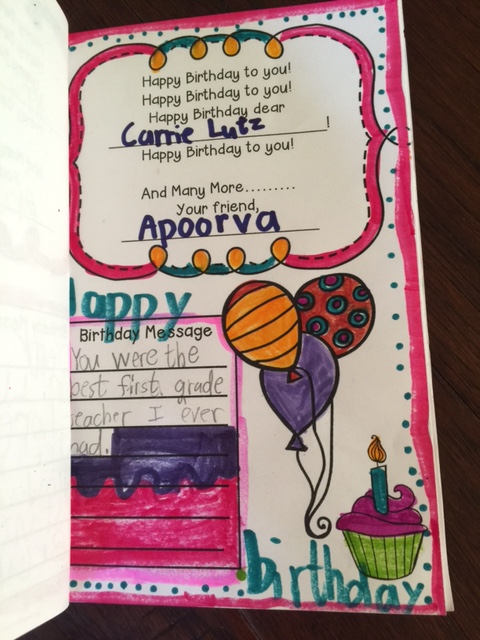 Happy Birthday to you!
Happy Birthday to you!
Happy Birthday dear
Carrie Lutz!
Happy Birthday to you!
And Many More.........
Your friend,
Apoorva
Happy
Birthday Message
You were the
best first grade
teacher I ever
had.
birthday